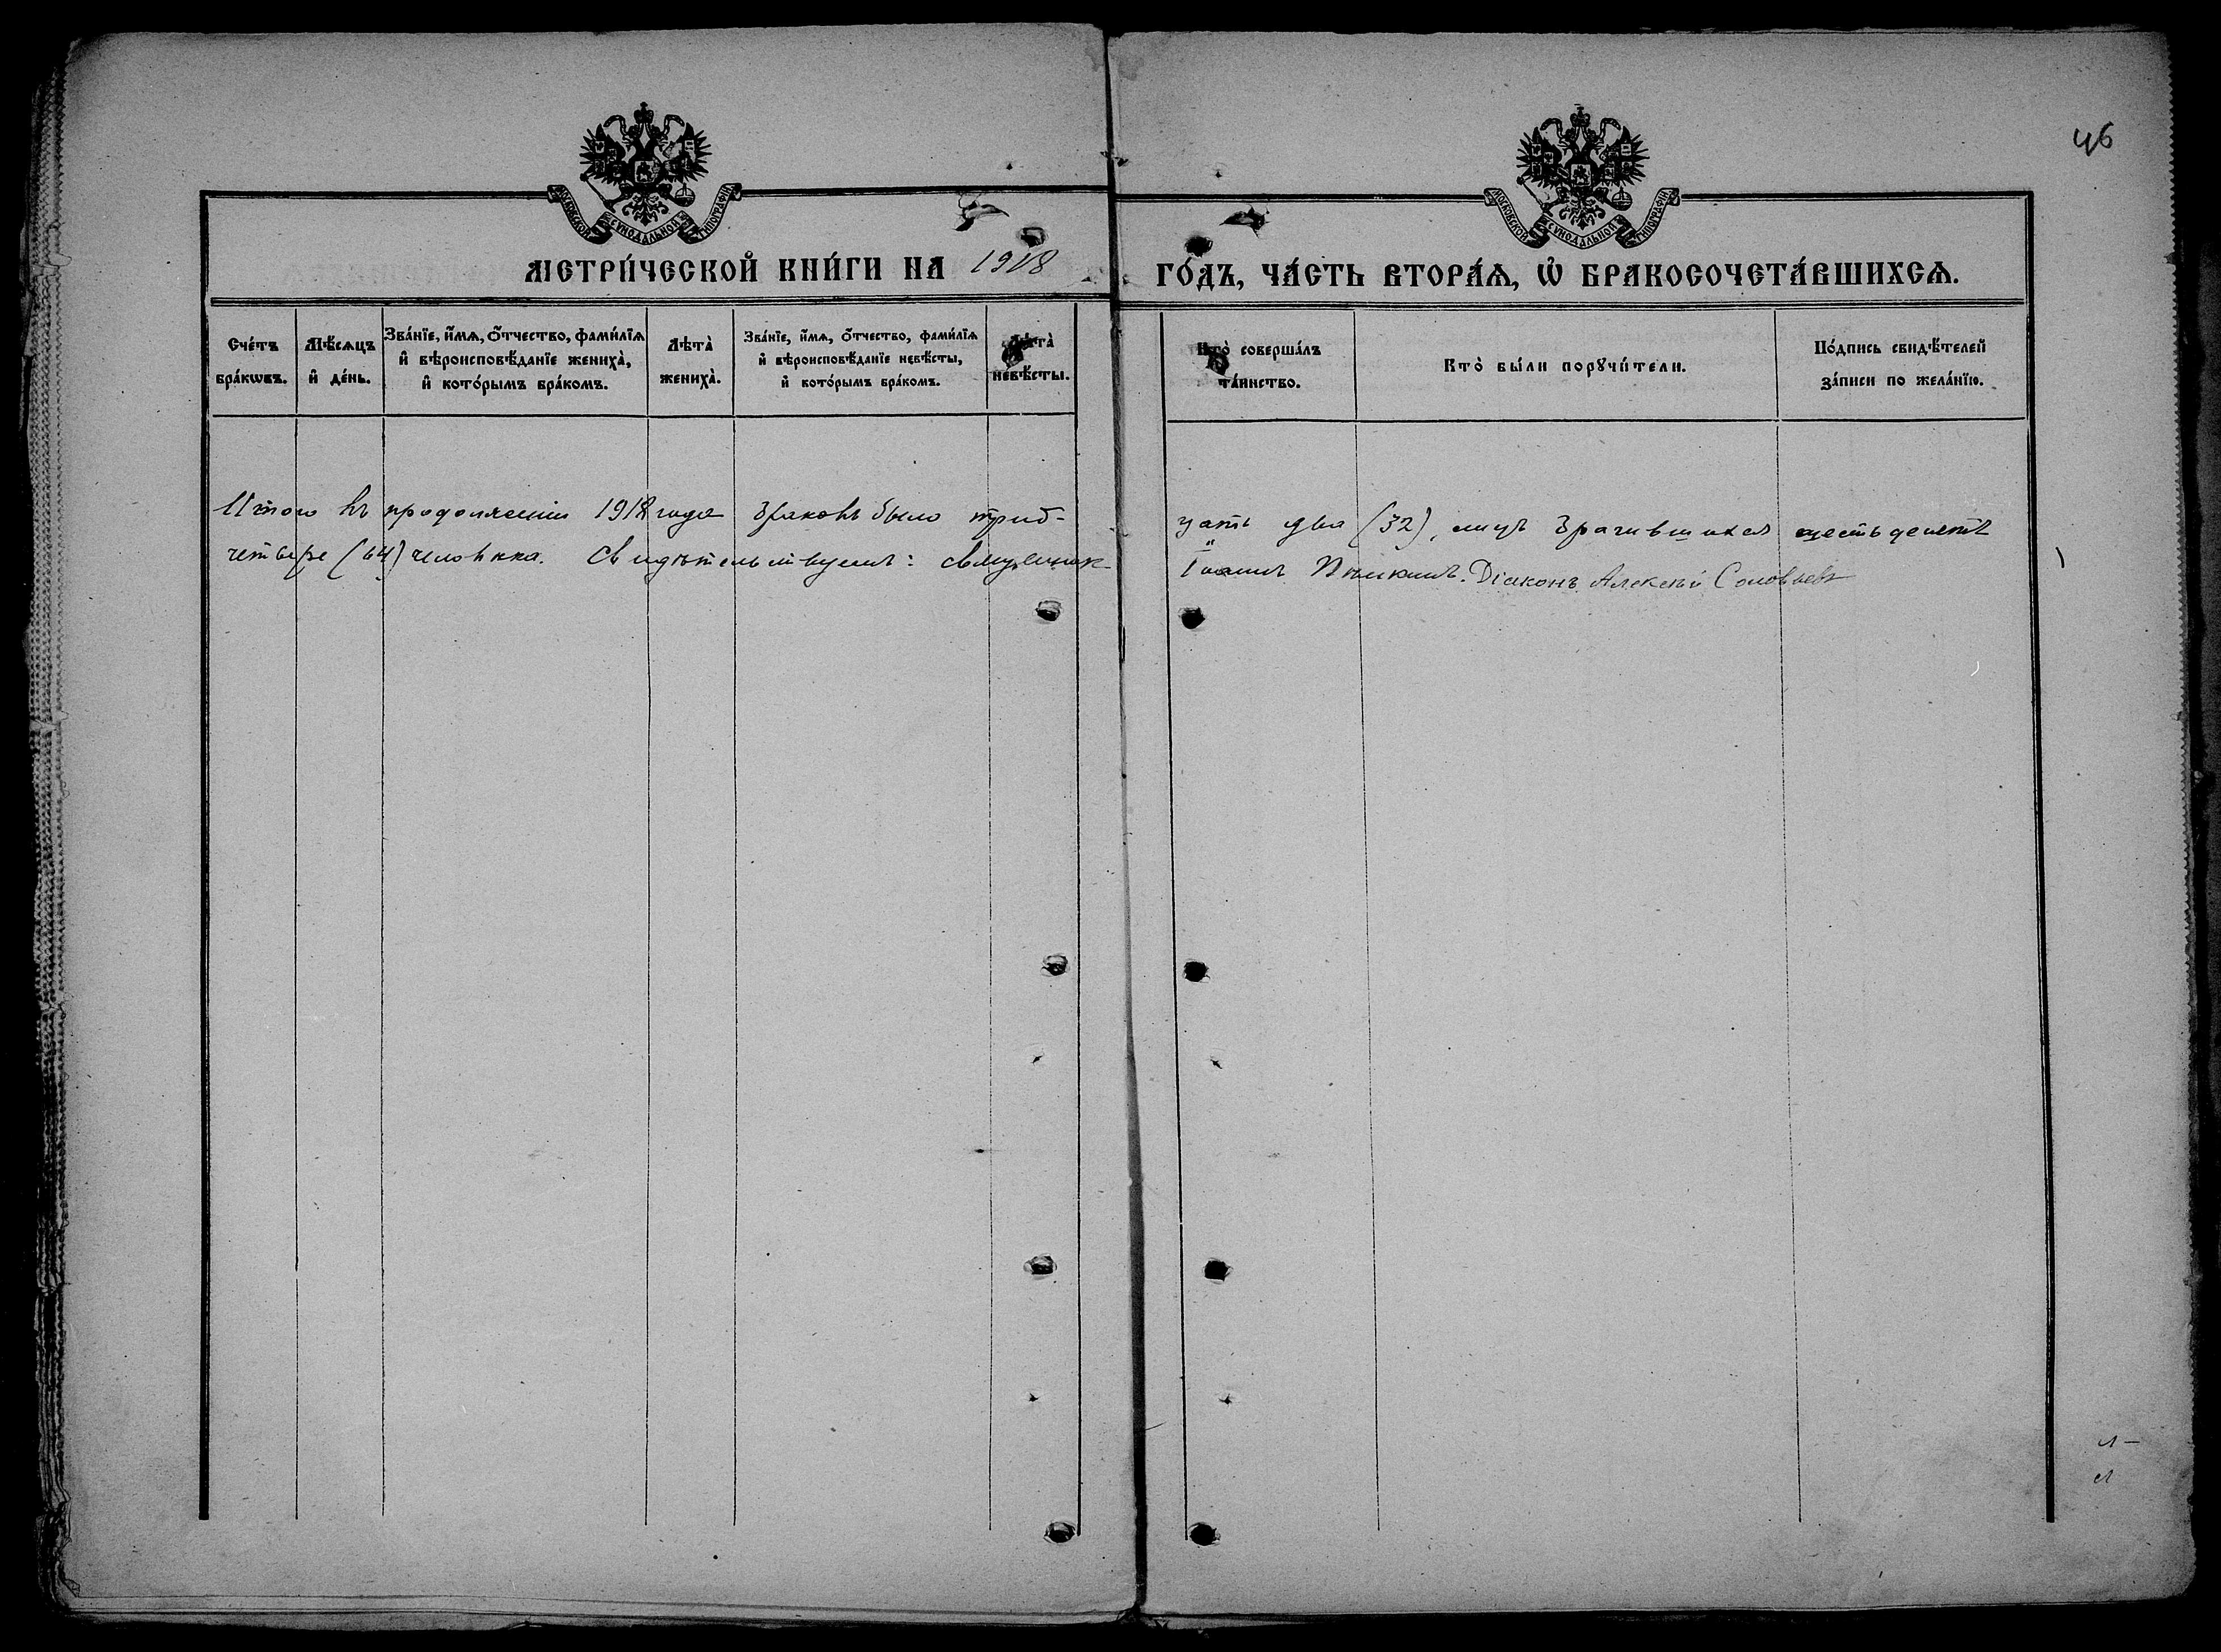 46
МОСКОВСКОЙ СѴНОДАЛЬНОЙ ТИПОГРАФІИ
МОСКОВСКОЙ СѴНОДАЛЬНОЙ ТИПОГРАФІИ
МЕТРИ́ЧЕСКОЙ КНИ́ГИ НА 1918 ГО́ДЪ, ЧА́СТЬ ВТОРА́Ѧ, Ѽ БРАКОСОЧЕТА́ВШИХСѦ.
Сче́тъ бра́кѡвъ.
Мѣ́сѧцъ и҆ де́нь.
Зва́нїе, и҆́мѧ, ѻ҆́тчество, фами́лїѧ и҆ вѣроисповѣ́данїе жениха̀, и҆ кото́рымъ бра́комъ.
Лѣта̀ жениха̀.
Зва́нїе, и҆́мѧ, ѻ҆́тчество, фами́лїѧ и҆ вѣроисповѣ́данїе невѣ́сты, и҆ кото́рымъ бра́комъ.
Лѣта̀ невѣ́сты.
Кто̀ соверша́лъ та́инство.
Кто̀ бы́ли порꙋчи́тели.
По́дпись свидѣ́телей за́писи по жела́нїю.
Итого въ продолженіи 1918 года браковъ было трид-
цать два (32), лицъ брачившихся шестьдесятъ
четыре (64) человѣка. Свидѣтельствуемъ: священник
Іоаннъ Діаконъ Алексѣй Соловьевъ